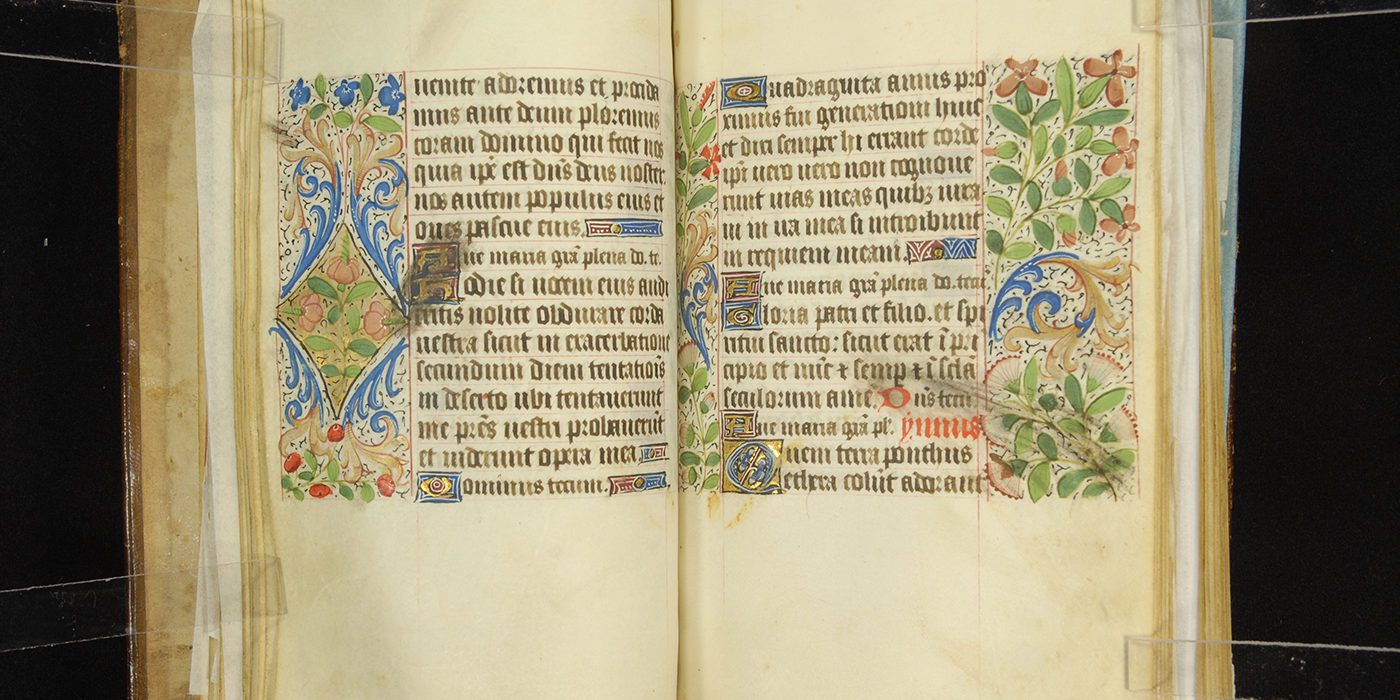 uenite adoremus et procida
mus ante deum ploremus
coram domino qui fecit nos
quia ipẽ est dñs deus noster
nos autem populus eius et
oues pascue eius.
Aue maria grã plena do. te.
Hodie si uocem eius audi
eritis nolite obdurare corda
uestra sicut in exacerbatione
secundum diem tentationis
in deserto ubi tentauerunt
me prẽs uestri probauerũt
et uiderunt opera mea
Dominus tecum.
Quadraginta annis pro
ximus fui generationi huic
et dixi semper hi errant corde
ipi uero uero non cognoue
runt uias meas quibꝫ iura
ui in ira mea si introibunt
in requiem meam.
Aue maria grã plena do. tecu
Gloria patri et filio. et spi
ritui sancto: sicut erat ĩ pri
cipio et nũc ⁊ semp ⁊ ĩ scla
seculorum ame. Dñs tecu
Aue maria grã pl'. ynnus
Quem terra ponthus
ethera colũt adorant